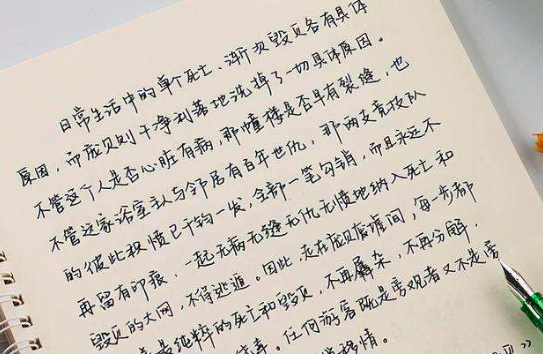 日常生活中的单个死亡、渐次毁灭各有具体
原因,而庞贝则干净利落地洗掉了一切具体原因。
不管这个人是否心脏有病,那幢楼是否早有裂缝,也
不管这家浴室主人与邻居有百年世仇,那两支竞技队
的彼此积愤已千钧一发,全部一笔勾销,而且永远不
再留有印痕,一起无病无缝无仇无愤地纳入死亡和
毁灭的大网,不得逃遁。因此,走在庞贝废墟间,每一步都
是纯粹的死亡和毁灭,不再羼杂,不再分解,
任何游客既是旁观者又不是旁